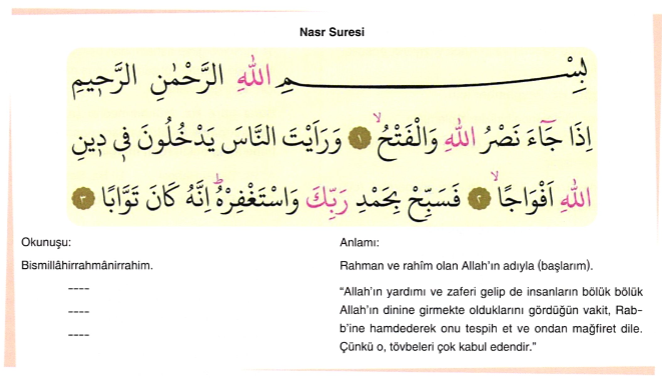 Nasr Suresi
بِسْمِ اللّٰهِ الرَّحْمٰنِ الرَّح۪يمِ
اِذَا جَٓاءَ نَصْرُ اللّٰهِ وَالْفَتْحُۙ ﴿١﴾ وَرَاَيْتَ النَّاسَ يَدْخُلُونَ ف۪ي د۪ينِ
اللّٰهِ اَفْوَاجًاۙ ﴿٢﴾ فَسَبِّحْ بِحَمْدِ رَبِّكَ وَاسْتَغْفِرْهُۜ اِنَّهُ كَانَ تَوَّابًا ﴿٣﴾
Okunuşu:
Bismillâhirrahmânirrahim.
----
----
----
Anlamı:
Rahman ve rahîm olan Allah’ın adıyla (başlarım).
“Allah’ın yardımı ve zaferi gelip de insanların bölük bölük
Allah’ın dinine girmekte olduklarını gördüğün vakit, Rab-
b’ine hamdederek onu tespih et ve ondan mağfiret dile.
Çünkü o, tövbeleri çok kabul edendir.”